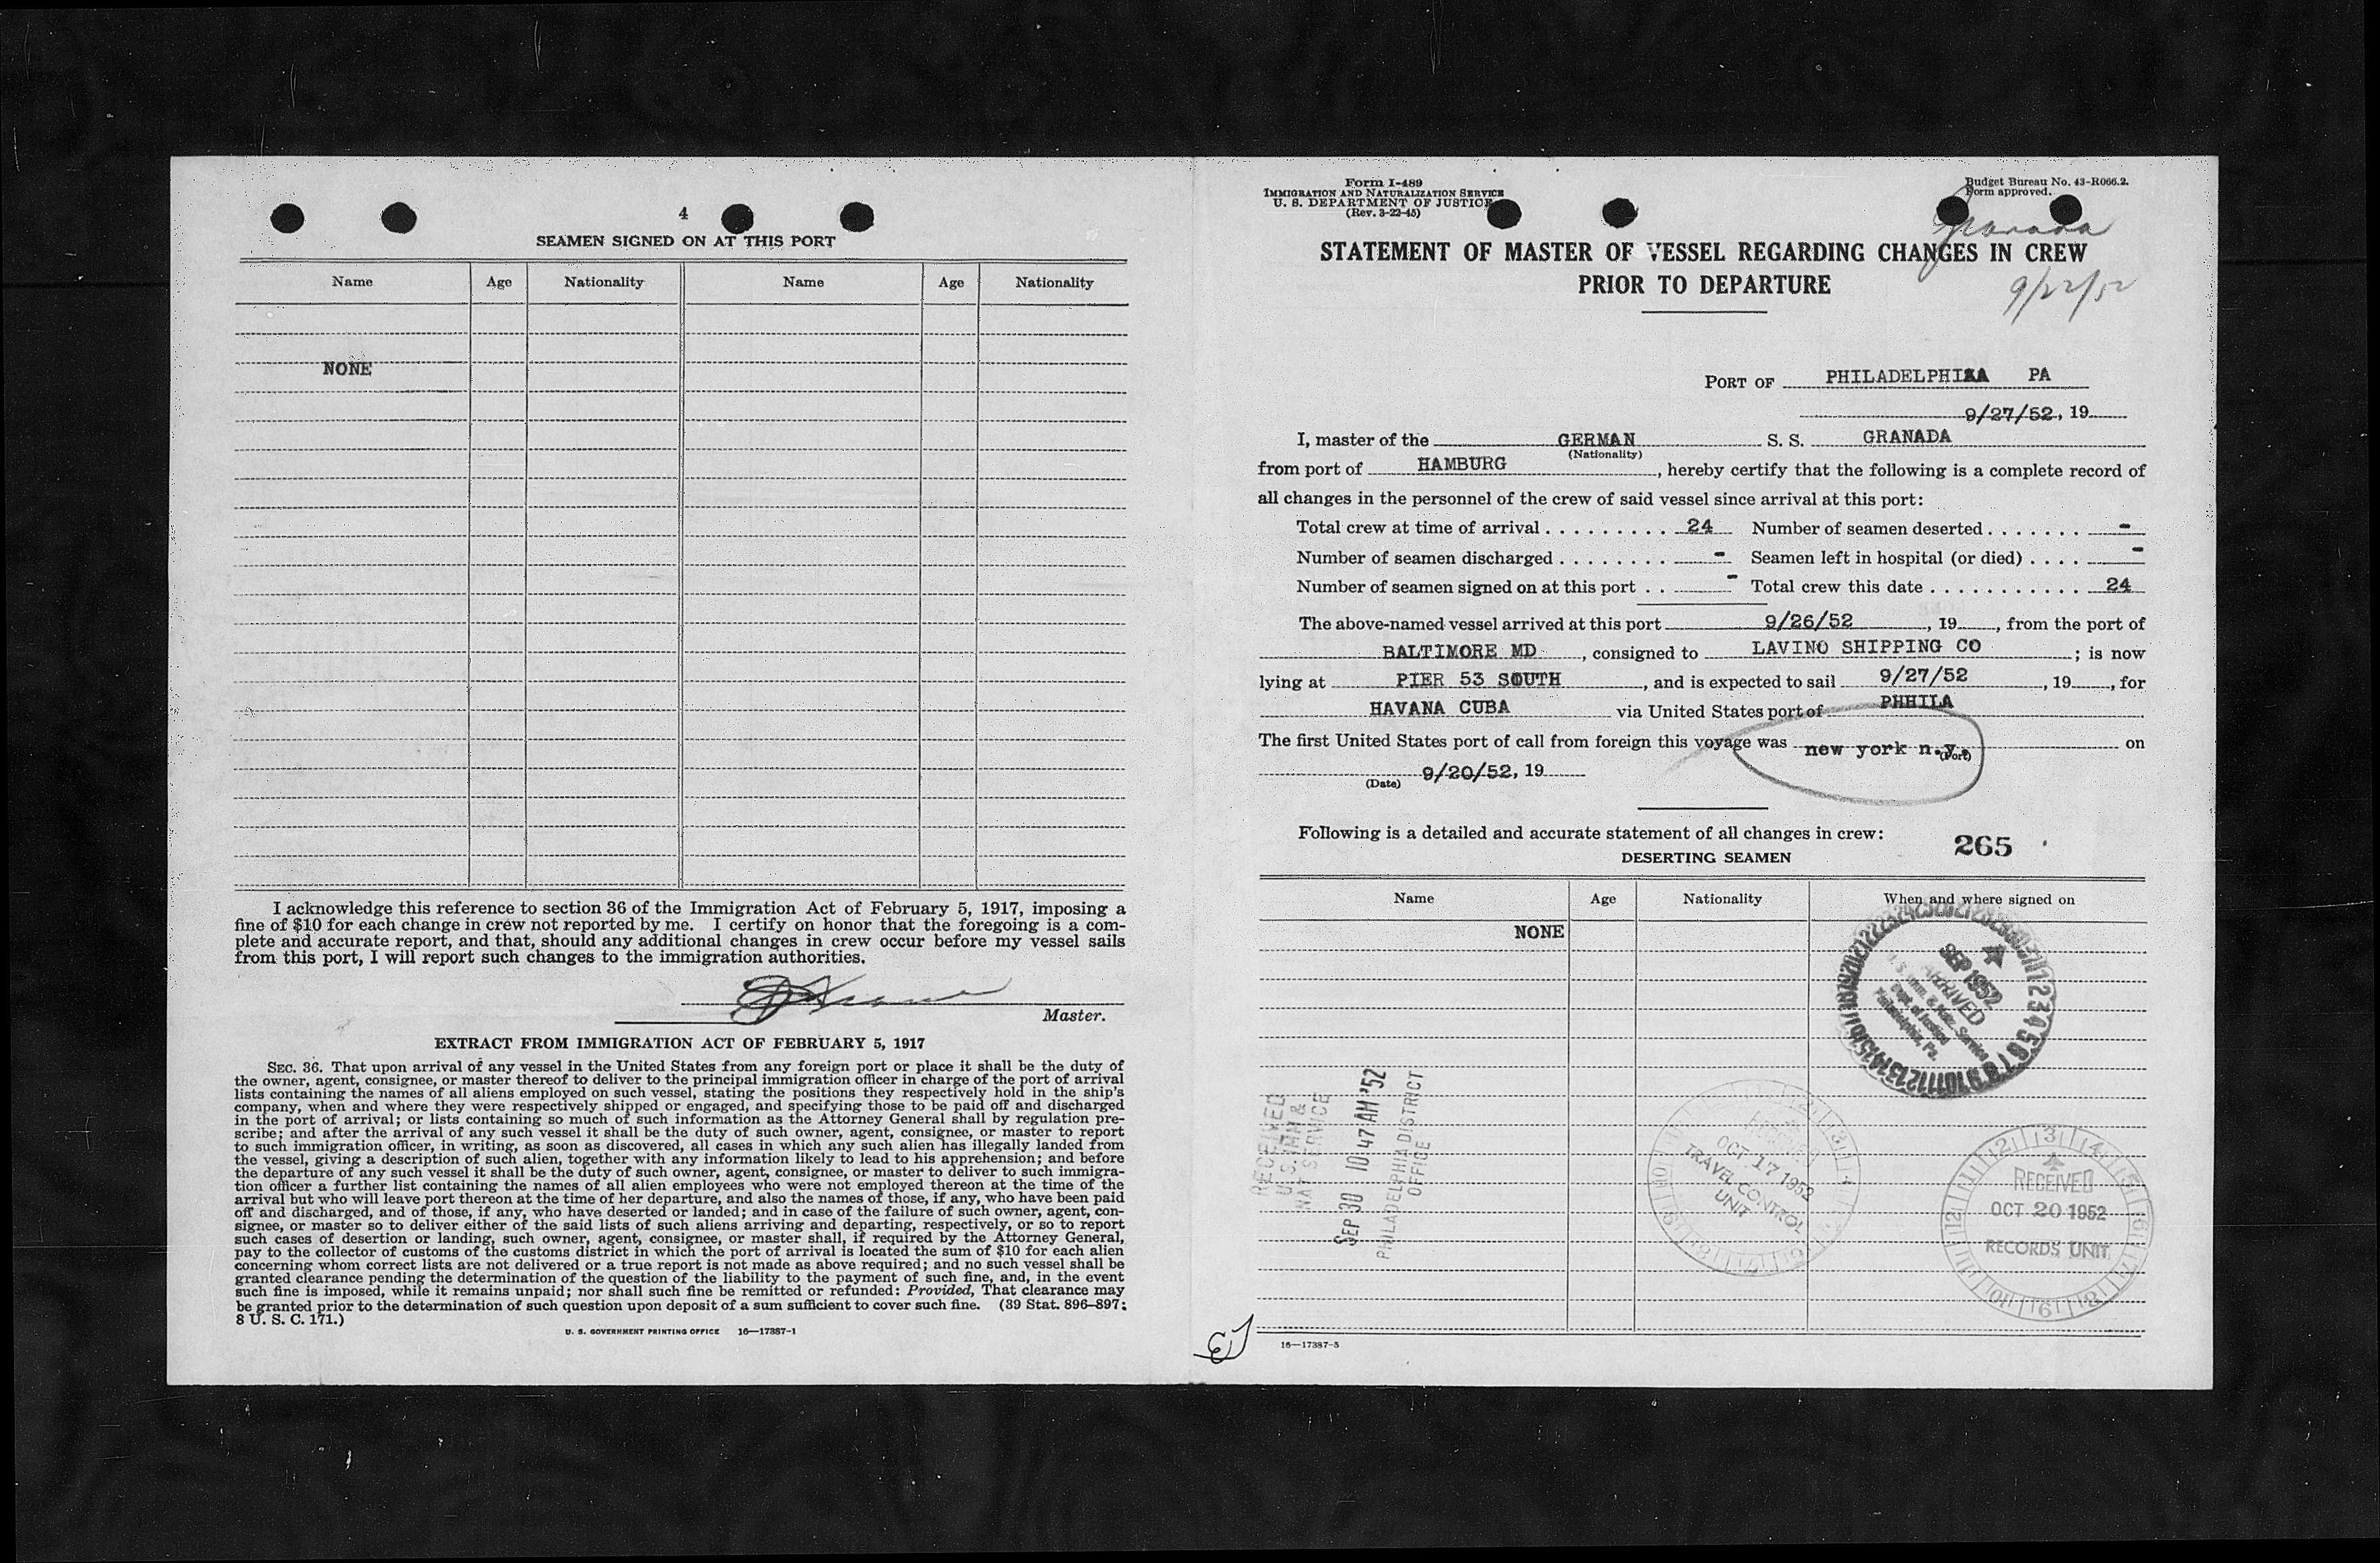 4
SEAMEN SIGNED ON AT THIS PORT
Name Age Nationality Name Age Nationality
NONE
I acknowledge this reference to section 36 of the Immigration Act of February 5, 1917, imposing a
fine of $10 for each change in crew not reported by me. I certify on honor that the foregoing is a com-
plete and accurate report, and that, should any additional changes in crew occur before my vessel sails
from this port, I will report such changes to the immigration authorities.
Master.
EXTRACT FROM IMMIGRATION ACT OF FEBRUARY 5, 1917
SEC. 36. That upon arrival of any vessel in the United States from any foreign port or place it shall be the duty of
the owner, agent, consignee, or master thereof to deliver to the principal immigration officer in charge of the port of arrival
lists containing the names of all aliens employed on such vessel, stating the positions they respectively hold in the ship's
company, when and where they were respectively shipped or engaged, and specifying those to be paid off and discharged
in the port of arrival; or lists containing so much of such information as the Attorney General shall by regulation pre-
scribe; and after the arrival of any such vessel it shall be the duty of such owner, agent, consignee, or master to report
to such immigration officer, in writing, as soon as discovered, all cases in which any such alien has illegally landed from
the vessel, giving a description of such alien, together with any information likely to lead to his apprehension; and before
the departure of any such vessel it shall be the duty of such owner, agent, consignee, or master to deliver to such immigra-
tion officer a further list containing the names of all alien employees who were not employed thereon at the time of the
arrival but who will leave port thereon at the time of her departure, and also the names of those, if any, who have been paid
off and discharged, and of those, if any, who have deserted or landed; and in case of the failure of such owner, agent, con-
signee, or master so to deliver either of the said lists of such aliens arriving and departing, respectively, or so to report
such cases of desertion or landing, such owner, agent, consignee, or master shall, if required by the Attorney General,
pay to the collector of customs of the customs district in which the port of arrival is located the sum of $10 for each alien
concerning whom correct lists are not delivered or a true report is not made as above required; and no such vessel shall be
granted clearance pending the determination of the question of the liability to the payment of such fine, and, in the event
such fine is imposed, while it remains unpaid; nor shall such fine be remitted or refunded: Provided, That clearance may
be granted prior to the determination of such question upon deposit of a sum sufficient to cover such fine. (39 Stat. 896–897;
8 U. S. C. 171.)
U. S. GOVERNMENT PRINTING OFFICE 16—17387-1
Form I-489
IMMIGRATION AND NATURALIZATION SERVICE
U. S. DEPARTMENT OF JUSTICE
(Rev. 3-22-45)
Budget Bureau No. 43-R066.2.
Form approved.
Granada
STATEMENT OF MASTER OF VESSEL REGARDING CHANGES IN CREW
PRIOR TO DEPARTURE
9/22/52
PORT OF PHILADELPHIA PA
9/27/52, 19
I, master of the GERMAN S. S. GRANADA
(Nationality)
from port of HAMBURG, hereby certify that the following is a complete record of
all changes in the personnel of the crew of said vessel since arrival at this port:
Total crew at time of arrival . . . . . . . . . . 24 Number of seamen deserted . . . . . . . -
Number of seamen discharged . . . . . . . . - Seamen left in hospital (or died) . . . . -
Number of seamen signed on at this port . . - Total crew this date . . . . . . . . . . . 24
The above-named vessel arrived at this port 9/26/52, 19, from the port of
BALTIMORE MD, consigned to LAVINO SHIPPING CO; is now
lying at PIER 53 SOUTH, and is expected to sail 9/27/52, 19, for
HAVANA CUBA via United States port of PHHILA
The first United States port of call from foreign this voyage was new york n.y. on
(Port)
9/20/52, 19
(Date)
Following is a detailed and accurate statement of all changes in crew:
265
DESERTING SEAMEN
Name Age Nationality When and where signed on
NONE
SEP 1952
ARRIVED
U. S. Imm. & Natz. Service
Dept. of Justice
Philadelphia, Pa.
RECEIVED
U.S. IMM &
NAT SERVICE
SEP 30 10 47 AM '52
PHILADELPHIA DISTRICT
OFFICE
RECEIVED
OCT 17 1952
TRAVEL CONTROL
UNIT
RECEIVED
OCT 20 1952
RECORDS UNIT
16—17387-5